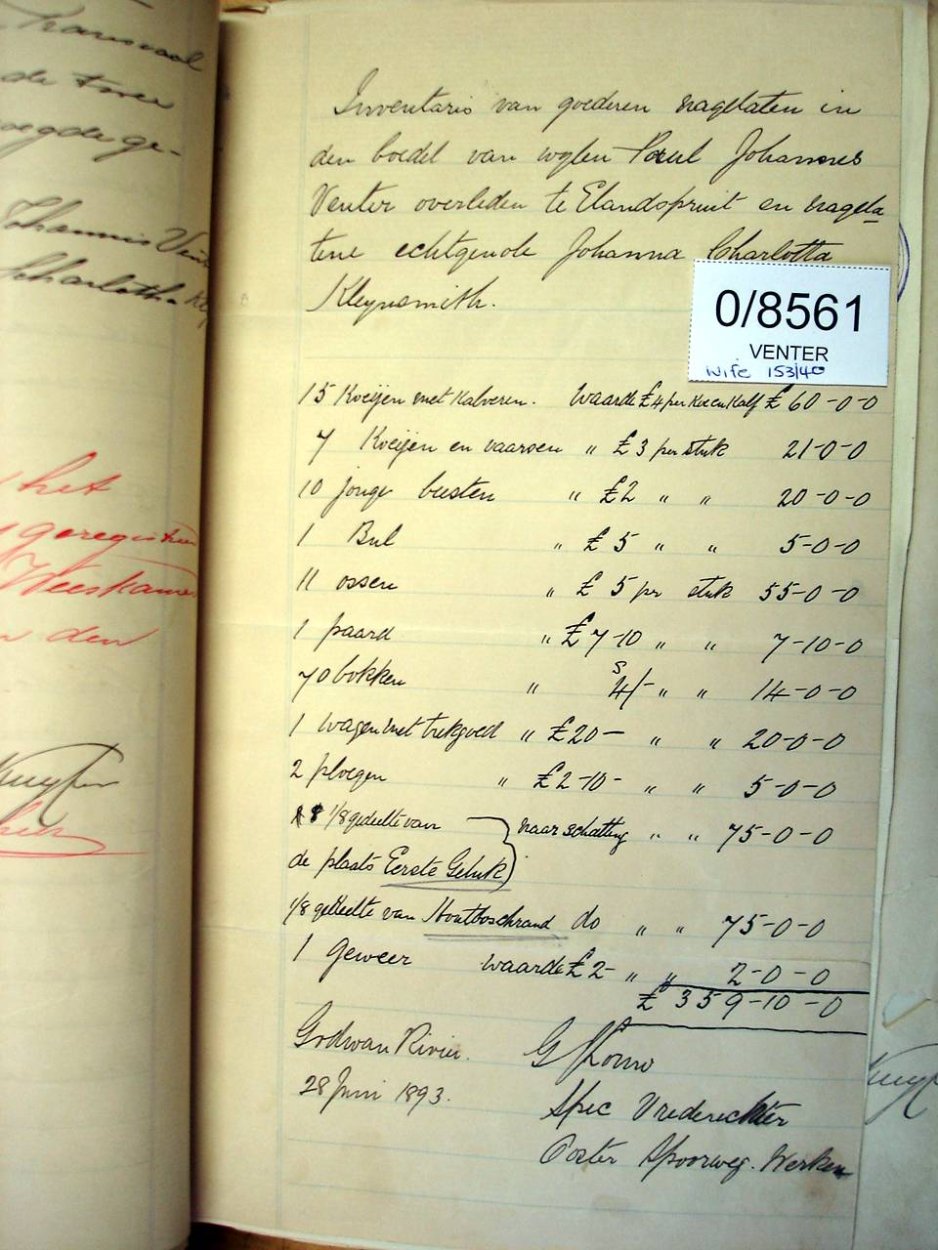 Transvaal
de twee
voegde ge-
Johannis Vent
Charlotha Kley
het
geregistreer
Weeskamer
den
Inventaris van goederen nagelaten in
den boedel van wylen Paul Johannes
Venter overleden te Elandspruit en nagela
tene echtgenote Johanna Charlotta
Kleynsmith.
0/8561
VENTER
Wife 153/40
15 Koeijen met Kalveren. Waarde £4 per Koe en Kalf £ 60-0-0
7 Koeijen en vaarsen " £3 per stuk 21-0-0
10 jonge beesten " £2 " " 20-0-0
1 Bul " £5 " " 5-0-0
11 ossen " £ 5 per stuk 55-0-0
1 paard " £7-10 " " 7-10-0
70 bokken " s 4/- " " 14-0-0
1 wagen met trekgoed " £20- " " 20-0-0
2 ploegen " £2-10- " " 5-0-0
1/8 gedeelte van naar schatting " " 75-0-0
de plaats Eerste Geluk
1/8 gedeelte van Houtboschrand do " " 75-0-0
1 geweer waarde £2- " " 2-0-0
£ 359-10-0
Godwan Rivier.
28 Juni 1893.
Spec Vrederechter
Ooster Spoorweg. Werken